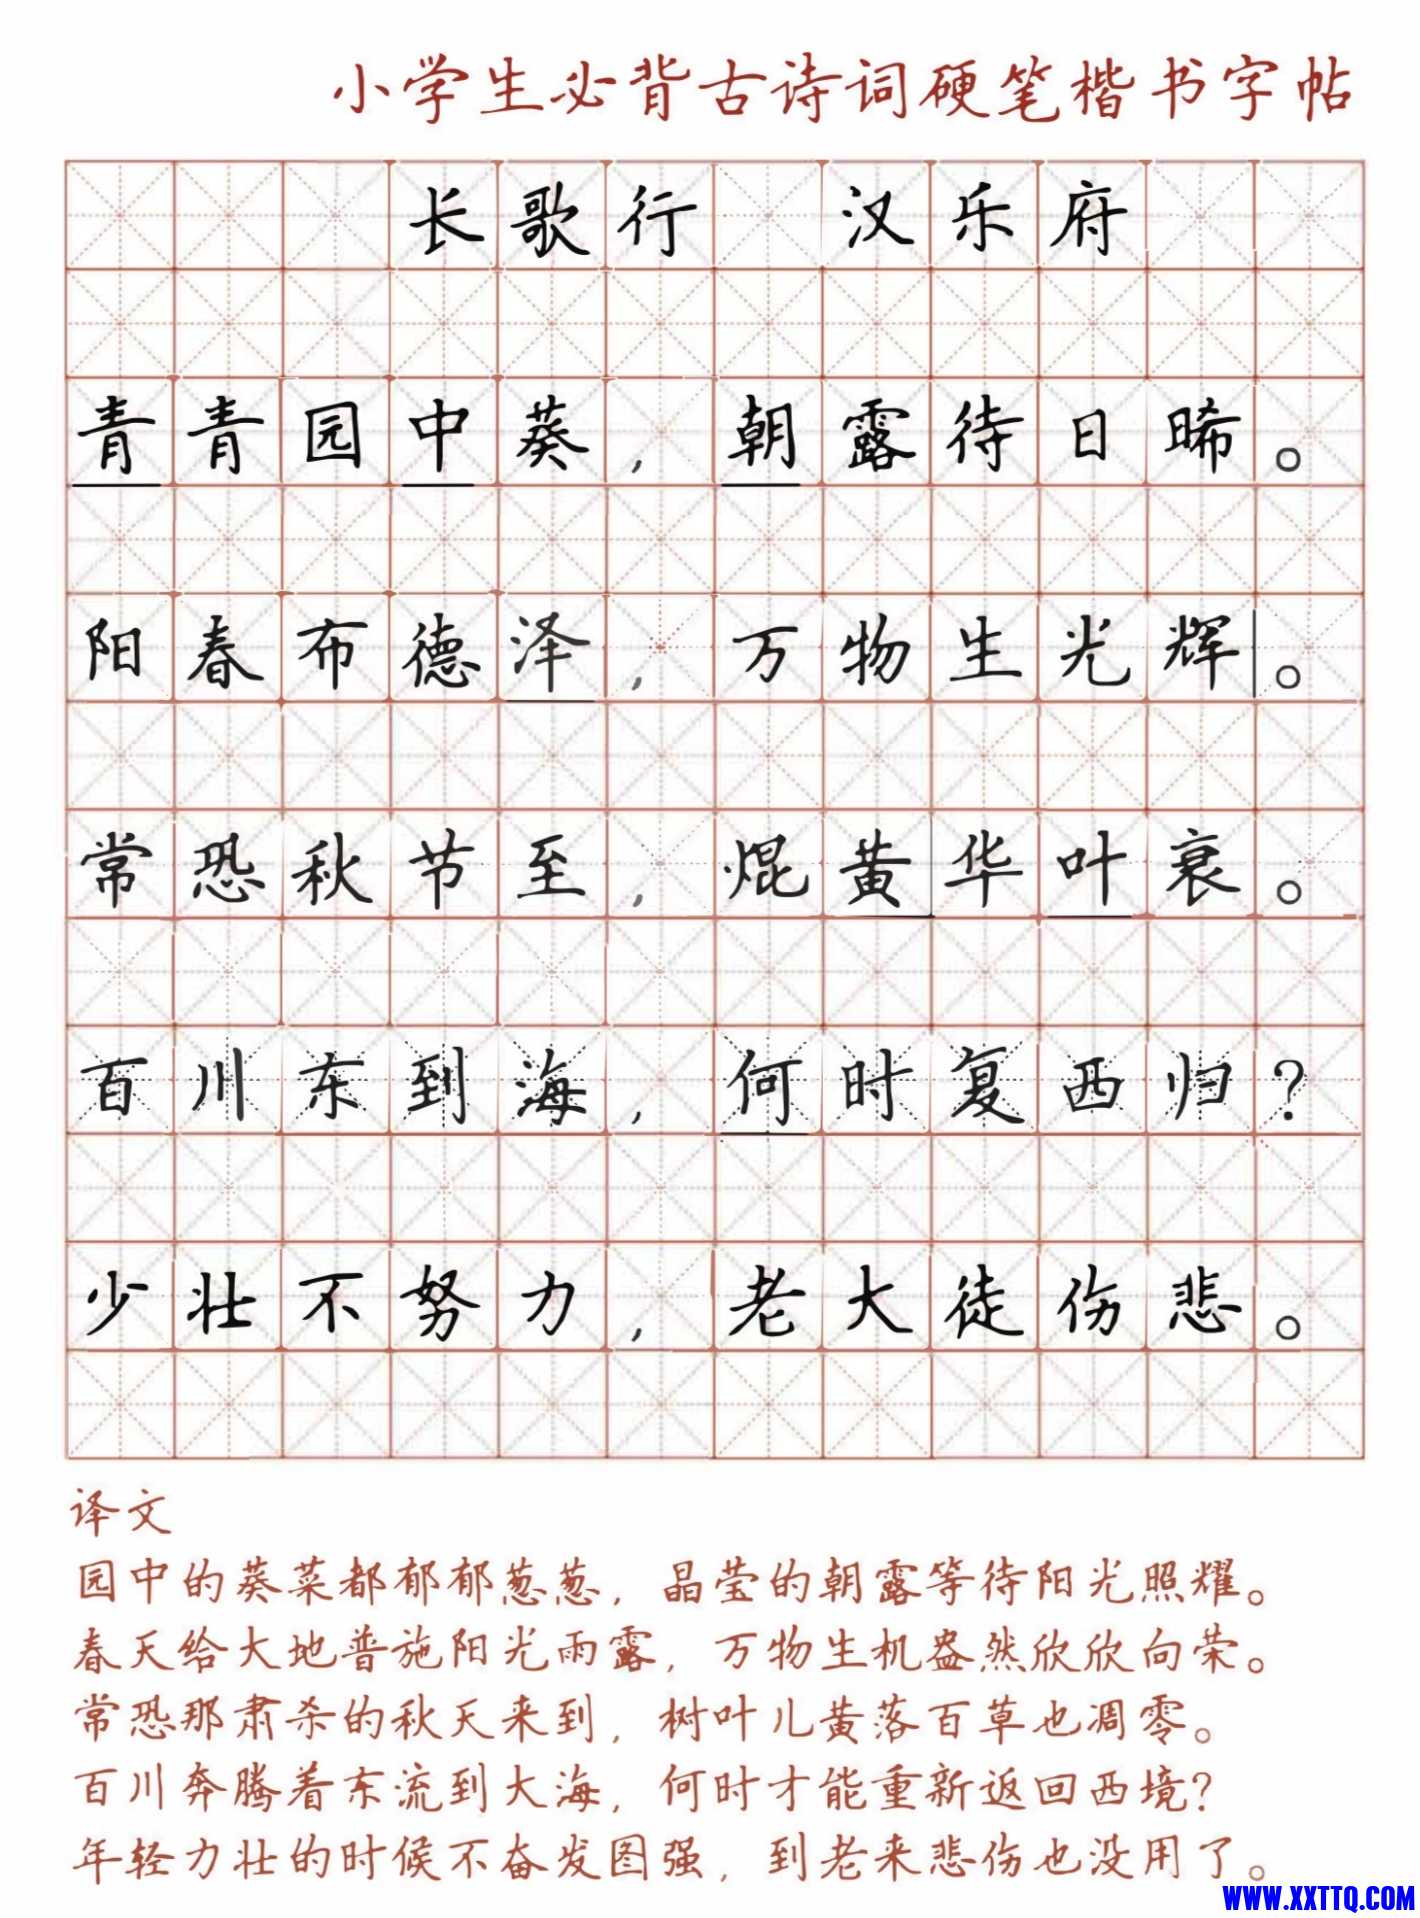 小学生必背古诗词硬笔楷书字帖
长歌行 汉乐府
青青园中葵，朝露待日晞。
阳春布德泽，万物生光辉。
常恐秋节至，焜黄华叶衰。
百川东到海，何时复西归？
少壮不努力，老大徒伤悲。
译文
园中的葵菜都郁郁葱葱，晶莹的朝露等待阳光照耀。
春天给大地普施阳光雨露，万物生机盎然欣欣向荣。
常恐那肃杀的秋天来到，树叶儿黄落百草也凋零。
百川奔腾着东流到大海，何时才能重新返回西境？
年轻力壮的时候不奋发图强，到老来悲伤也没用了。
WWW.XXTTQ.COM